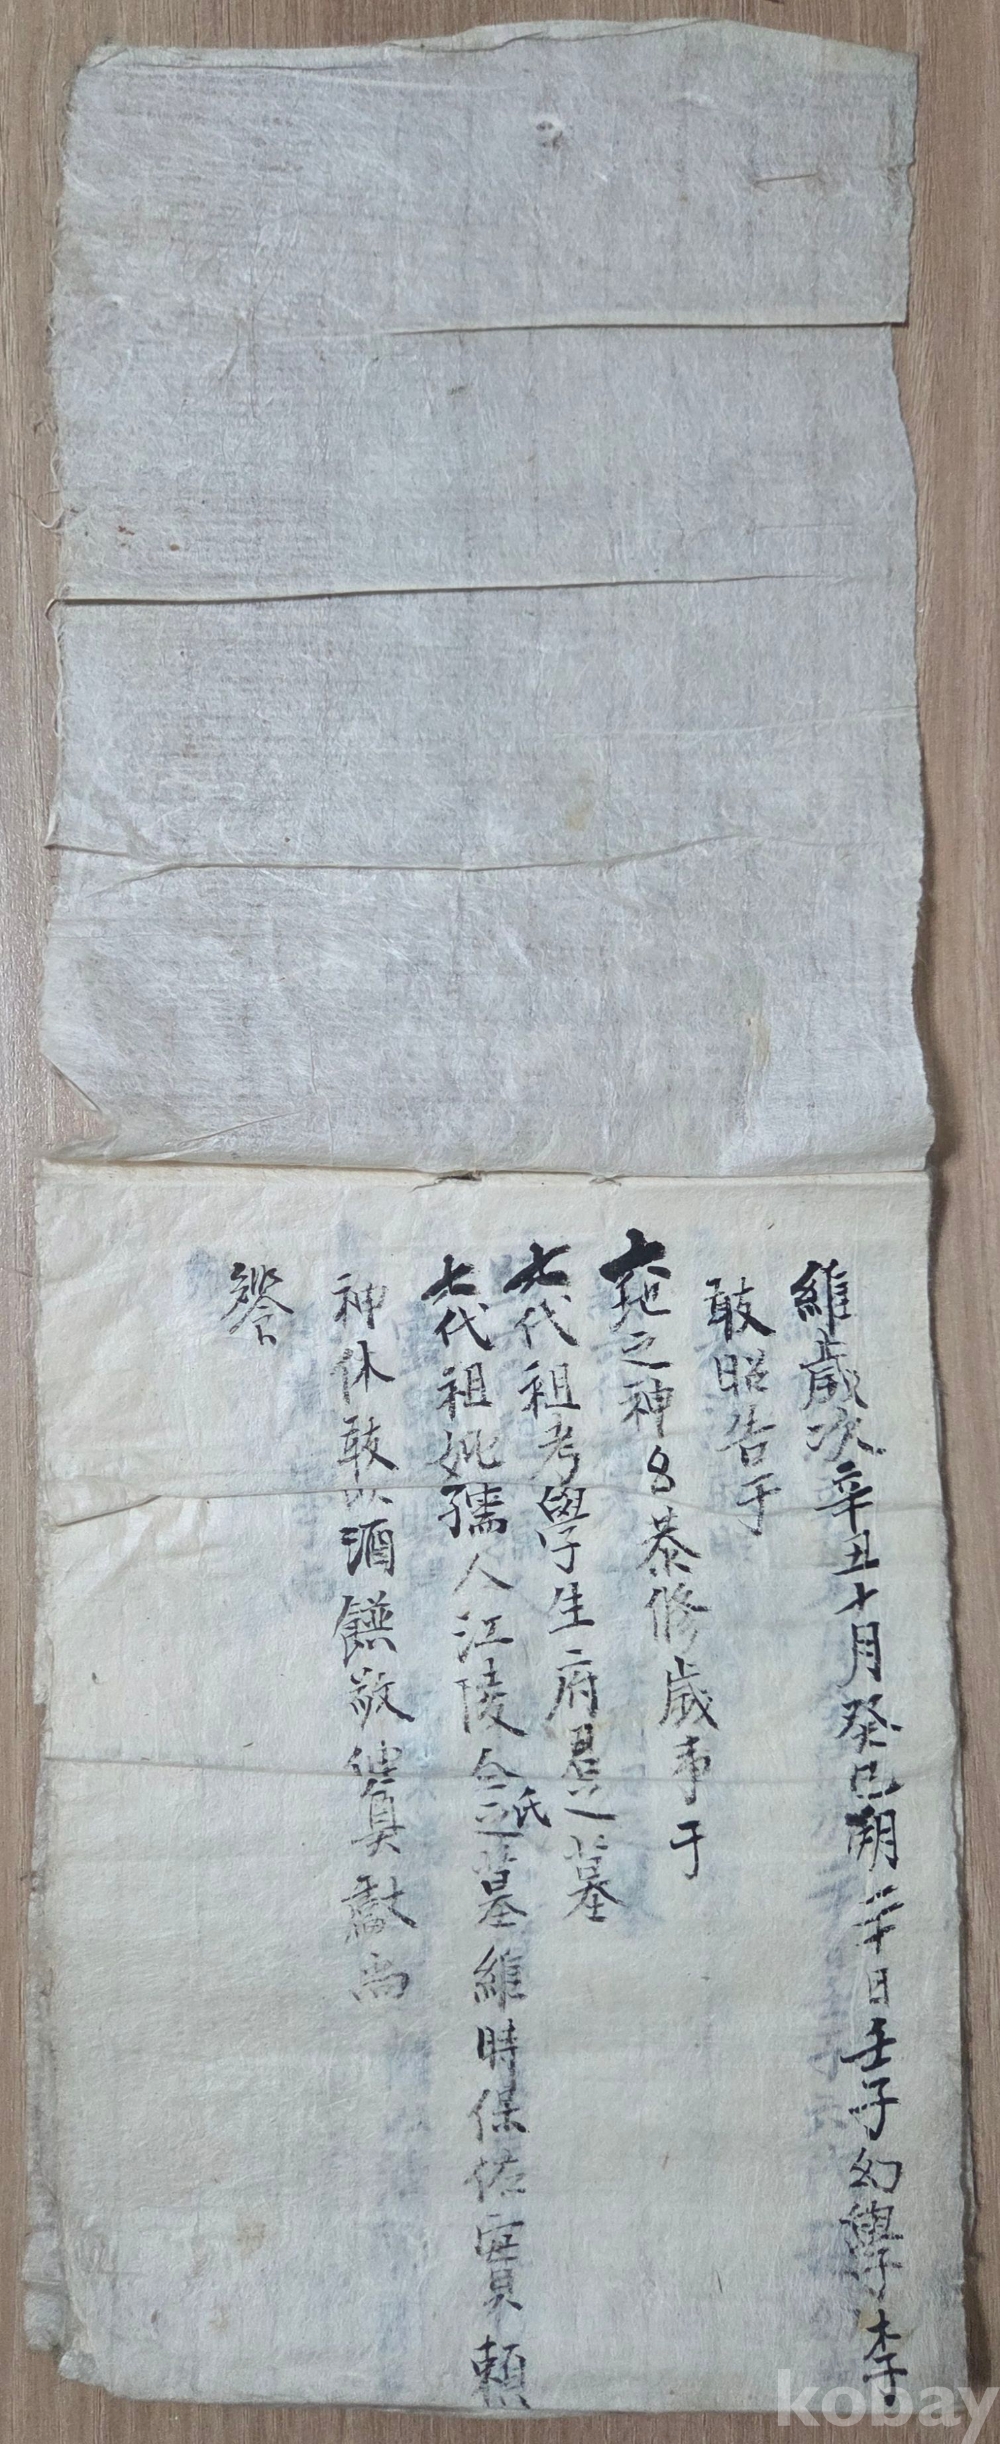 維歲次辛丑十月癸巳朔二十日壬子幼學李
敢昭告于
土地之神 恭修歲事于
七代祖考學生府君之墓
七代祖妣孺人江陵金氏之墓維時保佑實賴
神休敢以酒饌敬伸奠獻尙
饗
kobay